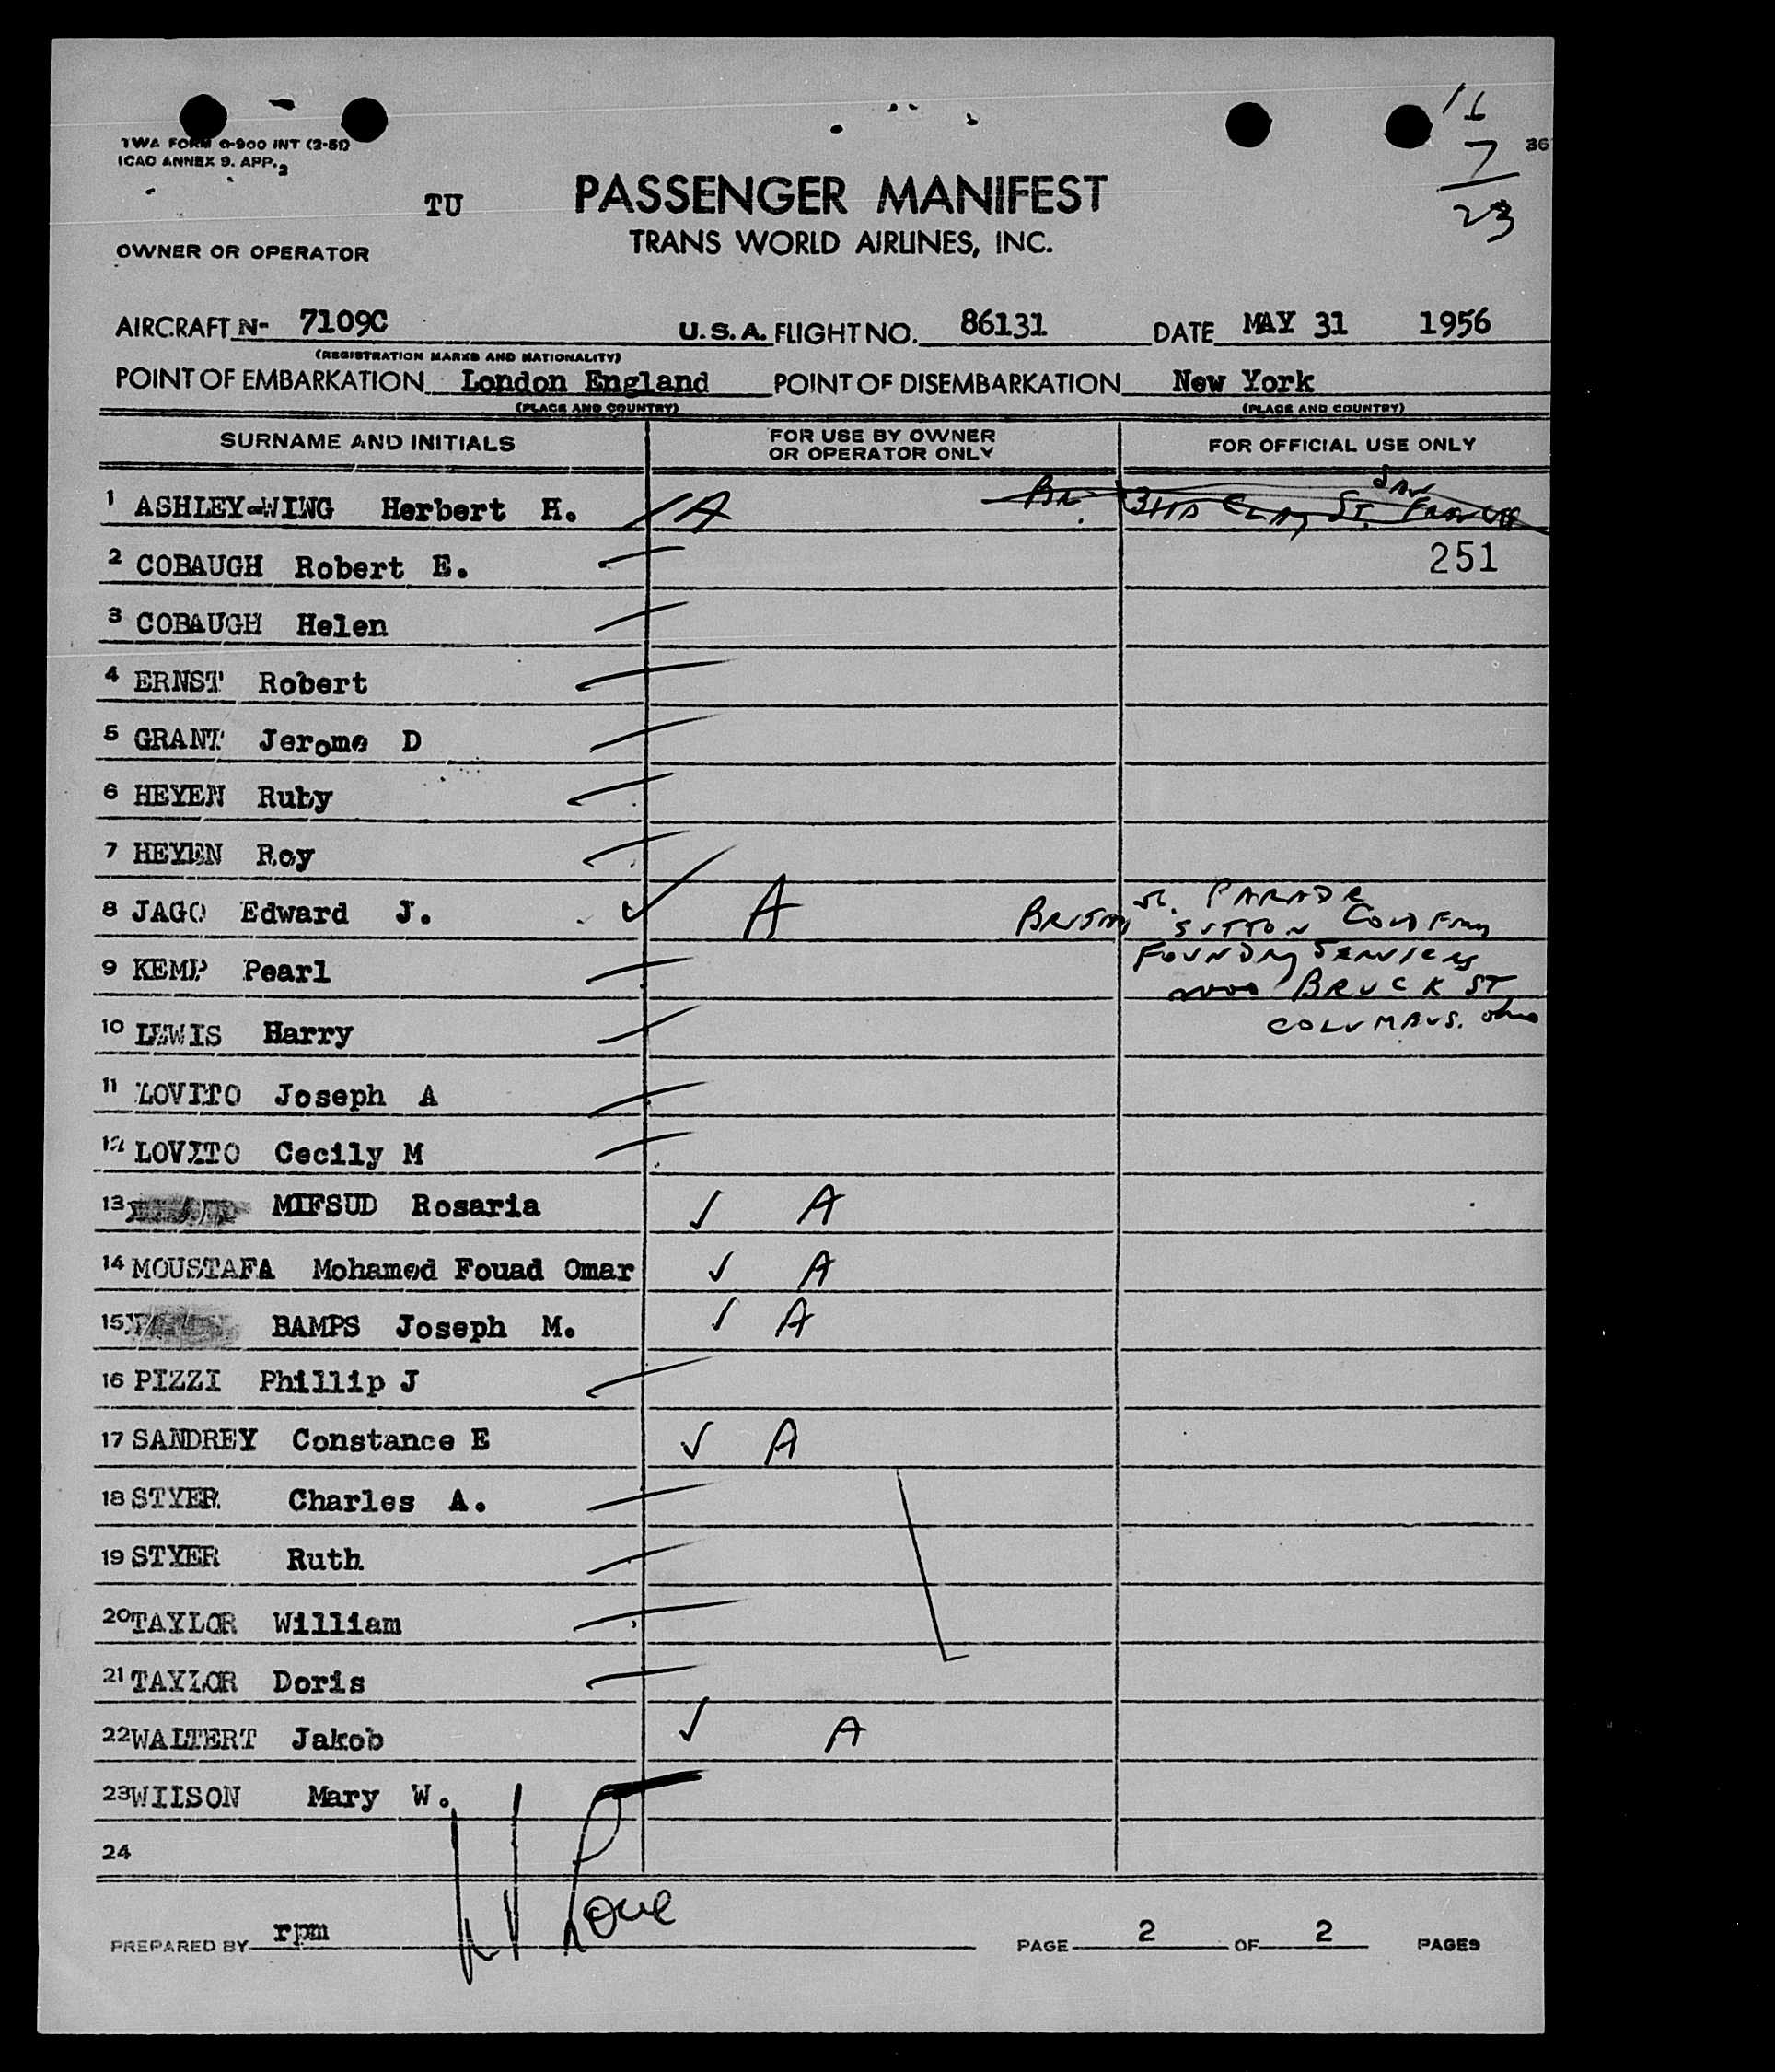 16
7
23
36
TWA FORM 0-900 INT (2-51)
ICAO ANNEX 9. APP. 2
TU PASSENGER MANIFEST
TRANS WORLD AIRLINES, INC.
OWNER OR OPERATOR
AIRCRAFT N- 7109C U.S.A. FLIGHT NO. 86131 DATE MAY 31 1956
(REGISTRATION MARKS AND NATIONALITY)
POINT OF EMBARKATION London England POINT OF DISEMBARKATION New York
(PLACE AND COUNTRY) (PLACE AND COUNTRY)
SURNAME AND INITIALS FOR USE BY OWNER OR OPERATOR ONLY FOR OFFICIAL USE ONLY
1 ASHLEY-WING Herbert H. A Br. Clay St. San
2 COBAUGH Robert E. 251
3 COBAUGH Helen
4 ERNST Robert
5 GRANT Jerome D
6 HEYEN Ruby
7 HEYEN Roy
8 JAGO Edward J. A PARADE
SUTTON
9 KEMP Pearl FOUNDRY SERVICES
BRUCK ST
10 LEWIS Harry COLUMBUS. Ohio
11 LOVITO Joseph A
12 LOVITO Cecily M
13 MIFSUD Rosaria ✓ A
14 MOUSTAFA Mohamed Fouad Omar ✓ A
15 BAMPS Joseph M. ✓ A
16 PIZZI Phillip J
17 SANDREY Constance E ✓ A
18 STYER Charles A.
19 STYER Ruth
20 TAYLOR William
21 TAYLOR Doris
22 WALTERT Jakob ✓ A
23 WILSON Mary W.
24
PREPARED BY rpm PAGE 2 OF 2 PAGES